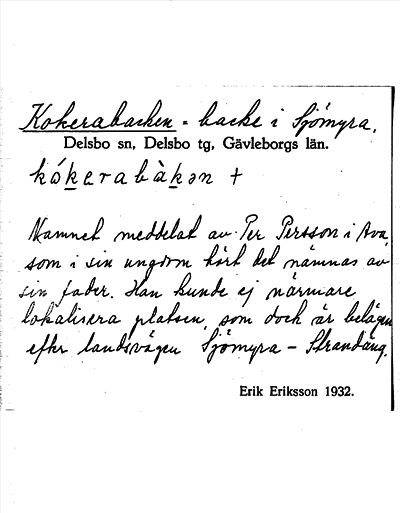 Kokerabacken - backe i Sjömyra.
Delsbo sn, Delsbo tg, Gävleborgs län.
kókerabàkən +
Namnet meddelat av Per Persson i Ava,
som i sin ungdom hört det nämnas av
sin fader. Han kunde ej närmare
lokalisera platsen, som dock är belägen
efter landsvägen Sjömyra - Strandäng.
Erik Eriksson 1932.